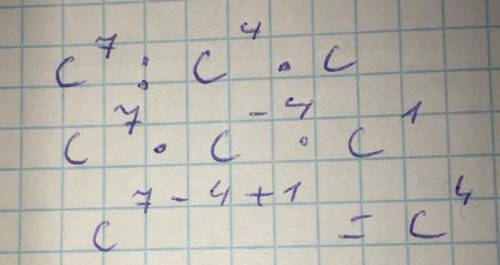 C⁷ : C⁴ · C
C⁷ · C⁻⁴ · C¹
C⁷⁻⁴⁺¹ = C⁴